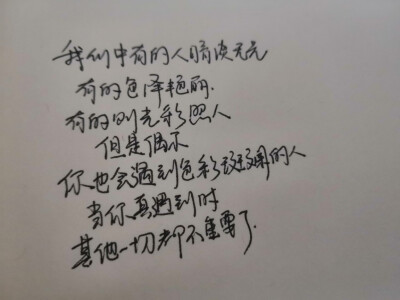 我们中有的人暗淡无光
有的色泽艳丽.
有的则光彩照人
但是偶尔
你也会遇到色彩斑斓的人
当你真遇到时
其他一切都不重要了